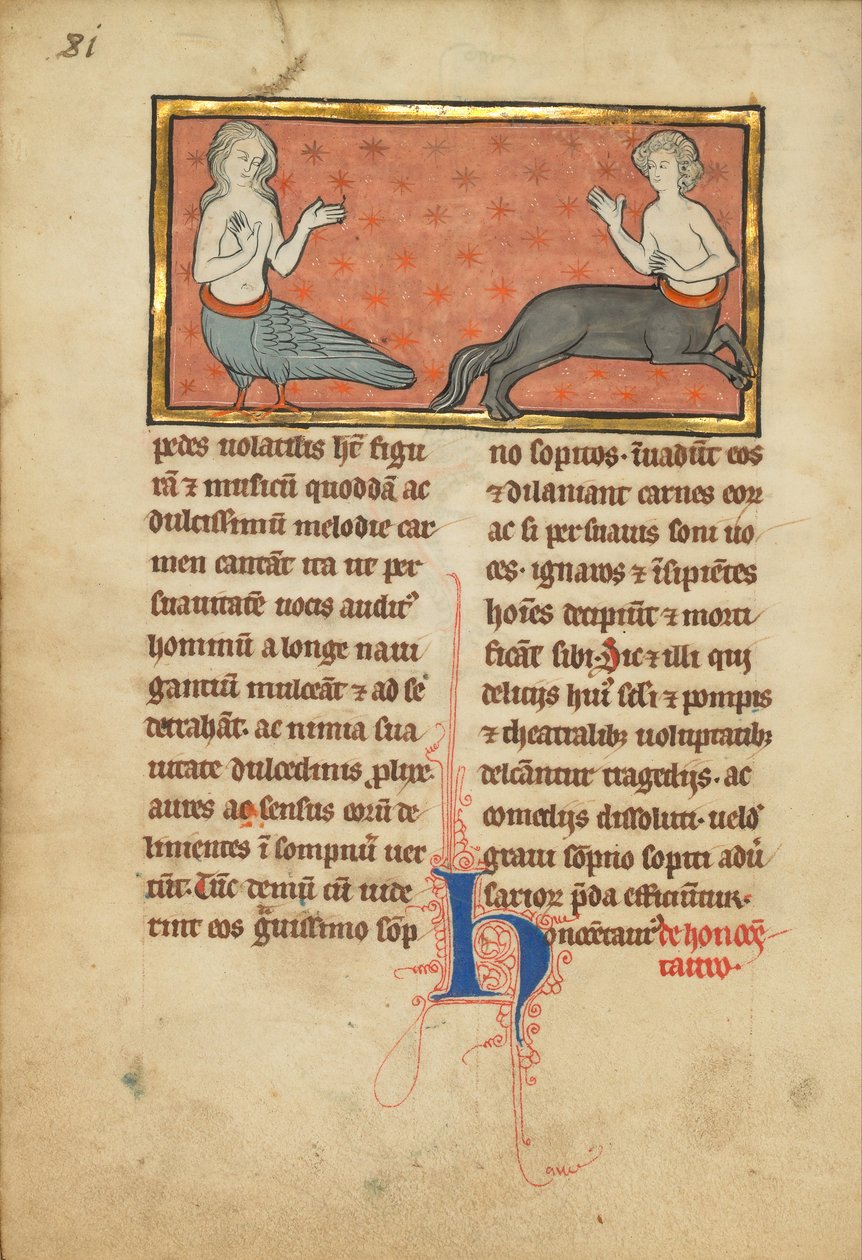 8i
pedes uolatilis hr̄ figu
rā ⁊ musicū quoddā ac
dulcissimū melodie car
men cantāt ita ut per
suauitatē uocis auditꝰ
hominū a longe naui
gantiū mulceāt ⁊ ad se
detrahāt. ac nimia sua
uitate dulcedinis ꝓlixe
aures ac sensus eorū de
linientes ī sompnū uer
tūt. Tūc demū cū uide
rint eos gͣuissimo sōp
no sopitos. īuadūt eos
⁊ dilaniant carnes eoꝝ
ac si persuauis soni uo
ces. ignaros ⁊ īsipiētes
hoīes decipiūt ⁊ morti
ficāt sibi. Sic ⁊ illi qui
delicijs huiꝰ scl̄i ⁊ pompis
⁊ theatralibꝫ uoluptatibꝫ
delcāntur tragedijs. ac
comedijs dissoluti. uelꝰ
graui sōpno sopiti adu̾
sarioꝝ p̄da efficiūtur.
honocētaurꝰ de honocē
tauro.